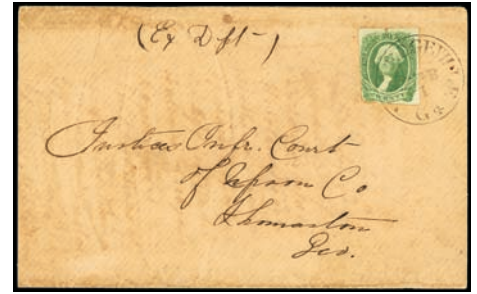 (Ex Dpt-)
Justices Infr. Court
of Upson Co
Thomaston
Geo.